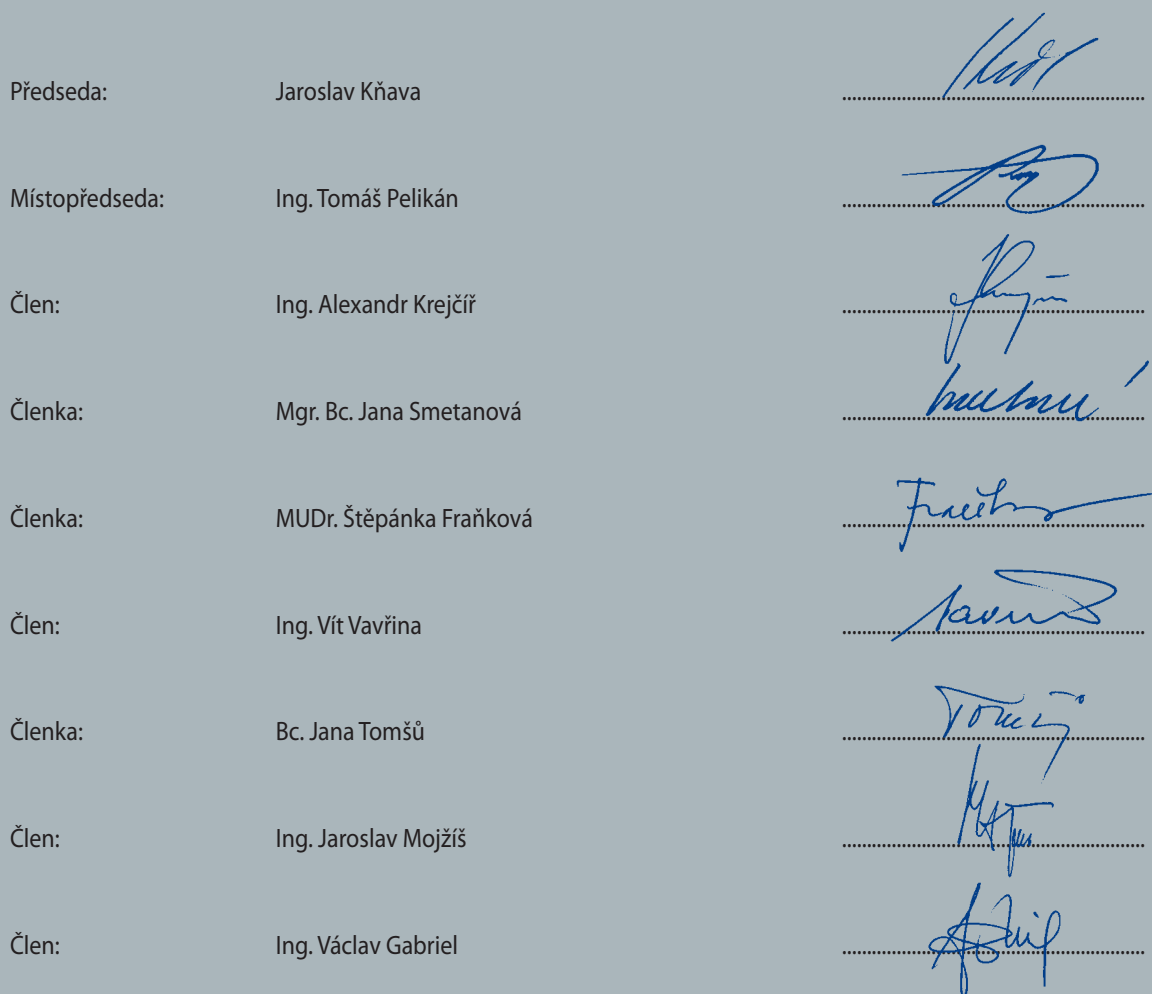 Předseda: Jaroslav Kňava
Místopředseda: Ing. Tomáš Pelikán
Člen: Ing. Alexandr Krejčíř
Členka: Mgr. Bc. Jana Smetanová
Členka: MUDr. Štěpánka Fraňková
Člen: Ing. Vít Vavřina
Členka: Bc. Jana Tomšů
Člen: Ing. Jaroslav Mojžíš
Člen: Ing. Václav Gabriel